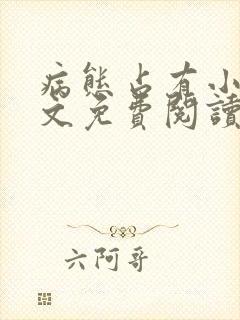 病態占有小
文免費閱讀
六阿哥